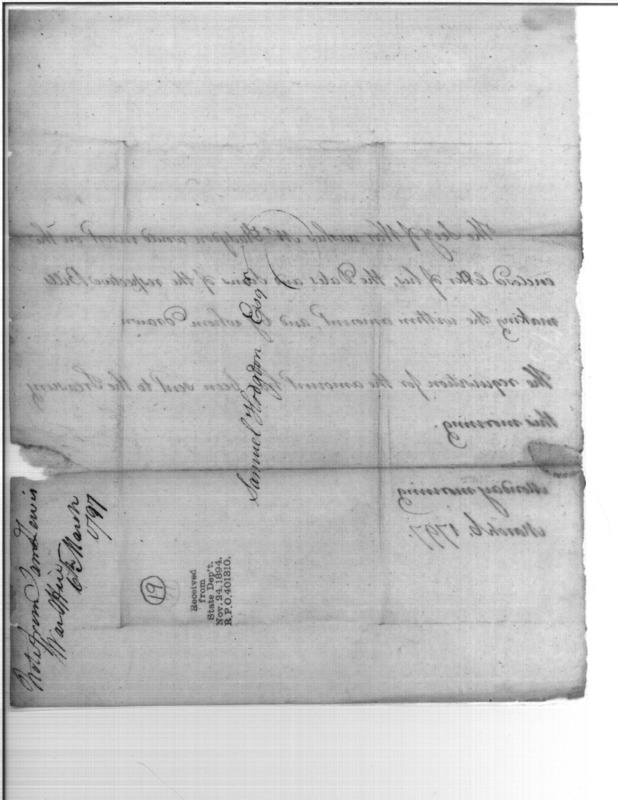 The Secy of War wishes Mr. Hodgdon would insert in the
enclosed letter of his, the Dates and Sums of the respective Bills
making the within amount, and by whom drawn
The requisition for the amount has been sent to the Treasury
this morning.
Monday morning
March 6. 1797
Samuel Hodgdon Esqr
Note from Lewis
War Office
6th March
1797
19
Received
from
State Dep't.
Nov. 24. 1894.
R.P.O. 401310.